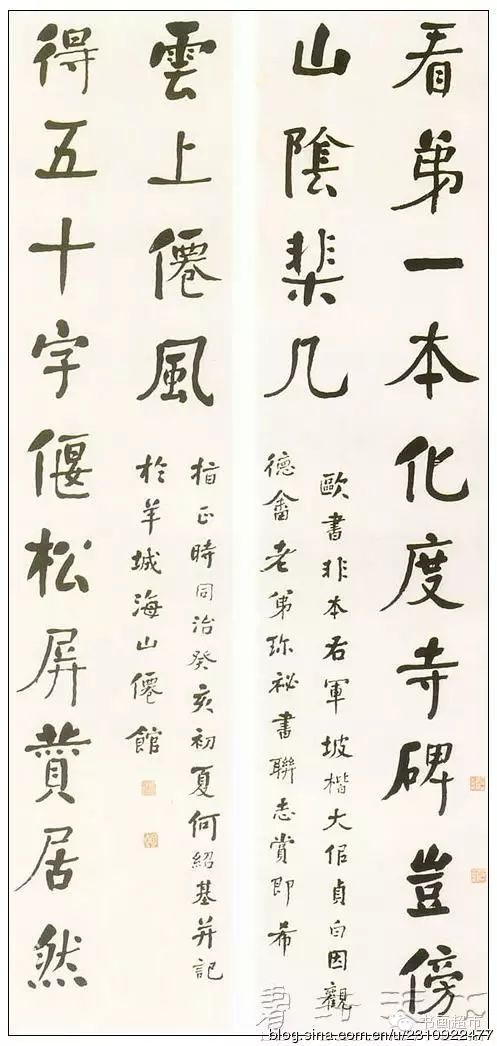 看第一本化度寺碑豈傍
山陰棐几
歐書非本右軍坡楷大佀貞白因觀
德畬老弟珎祕書聯志賞即希
得五十字偃松屏贊居然
雲上僊風
指正時同治癸亥初夏何紹基并記
於羊城海山僊館
书画超市
blog.sina.com.cn/u/2310922477